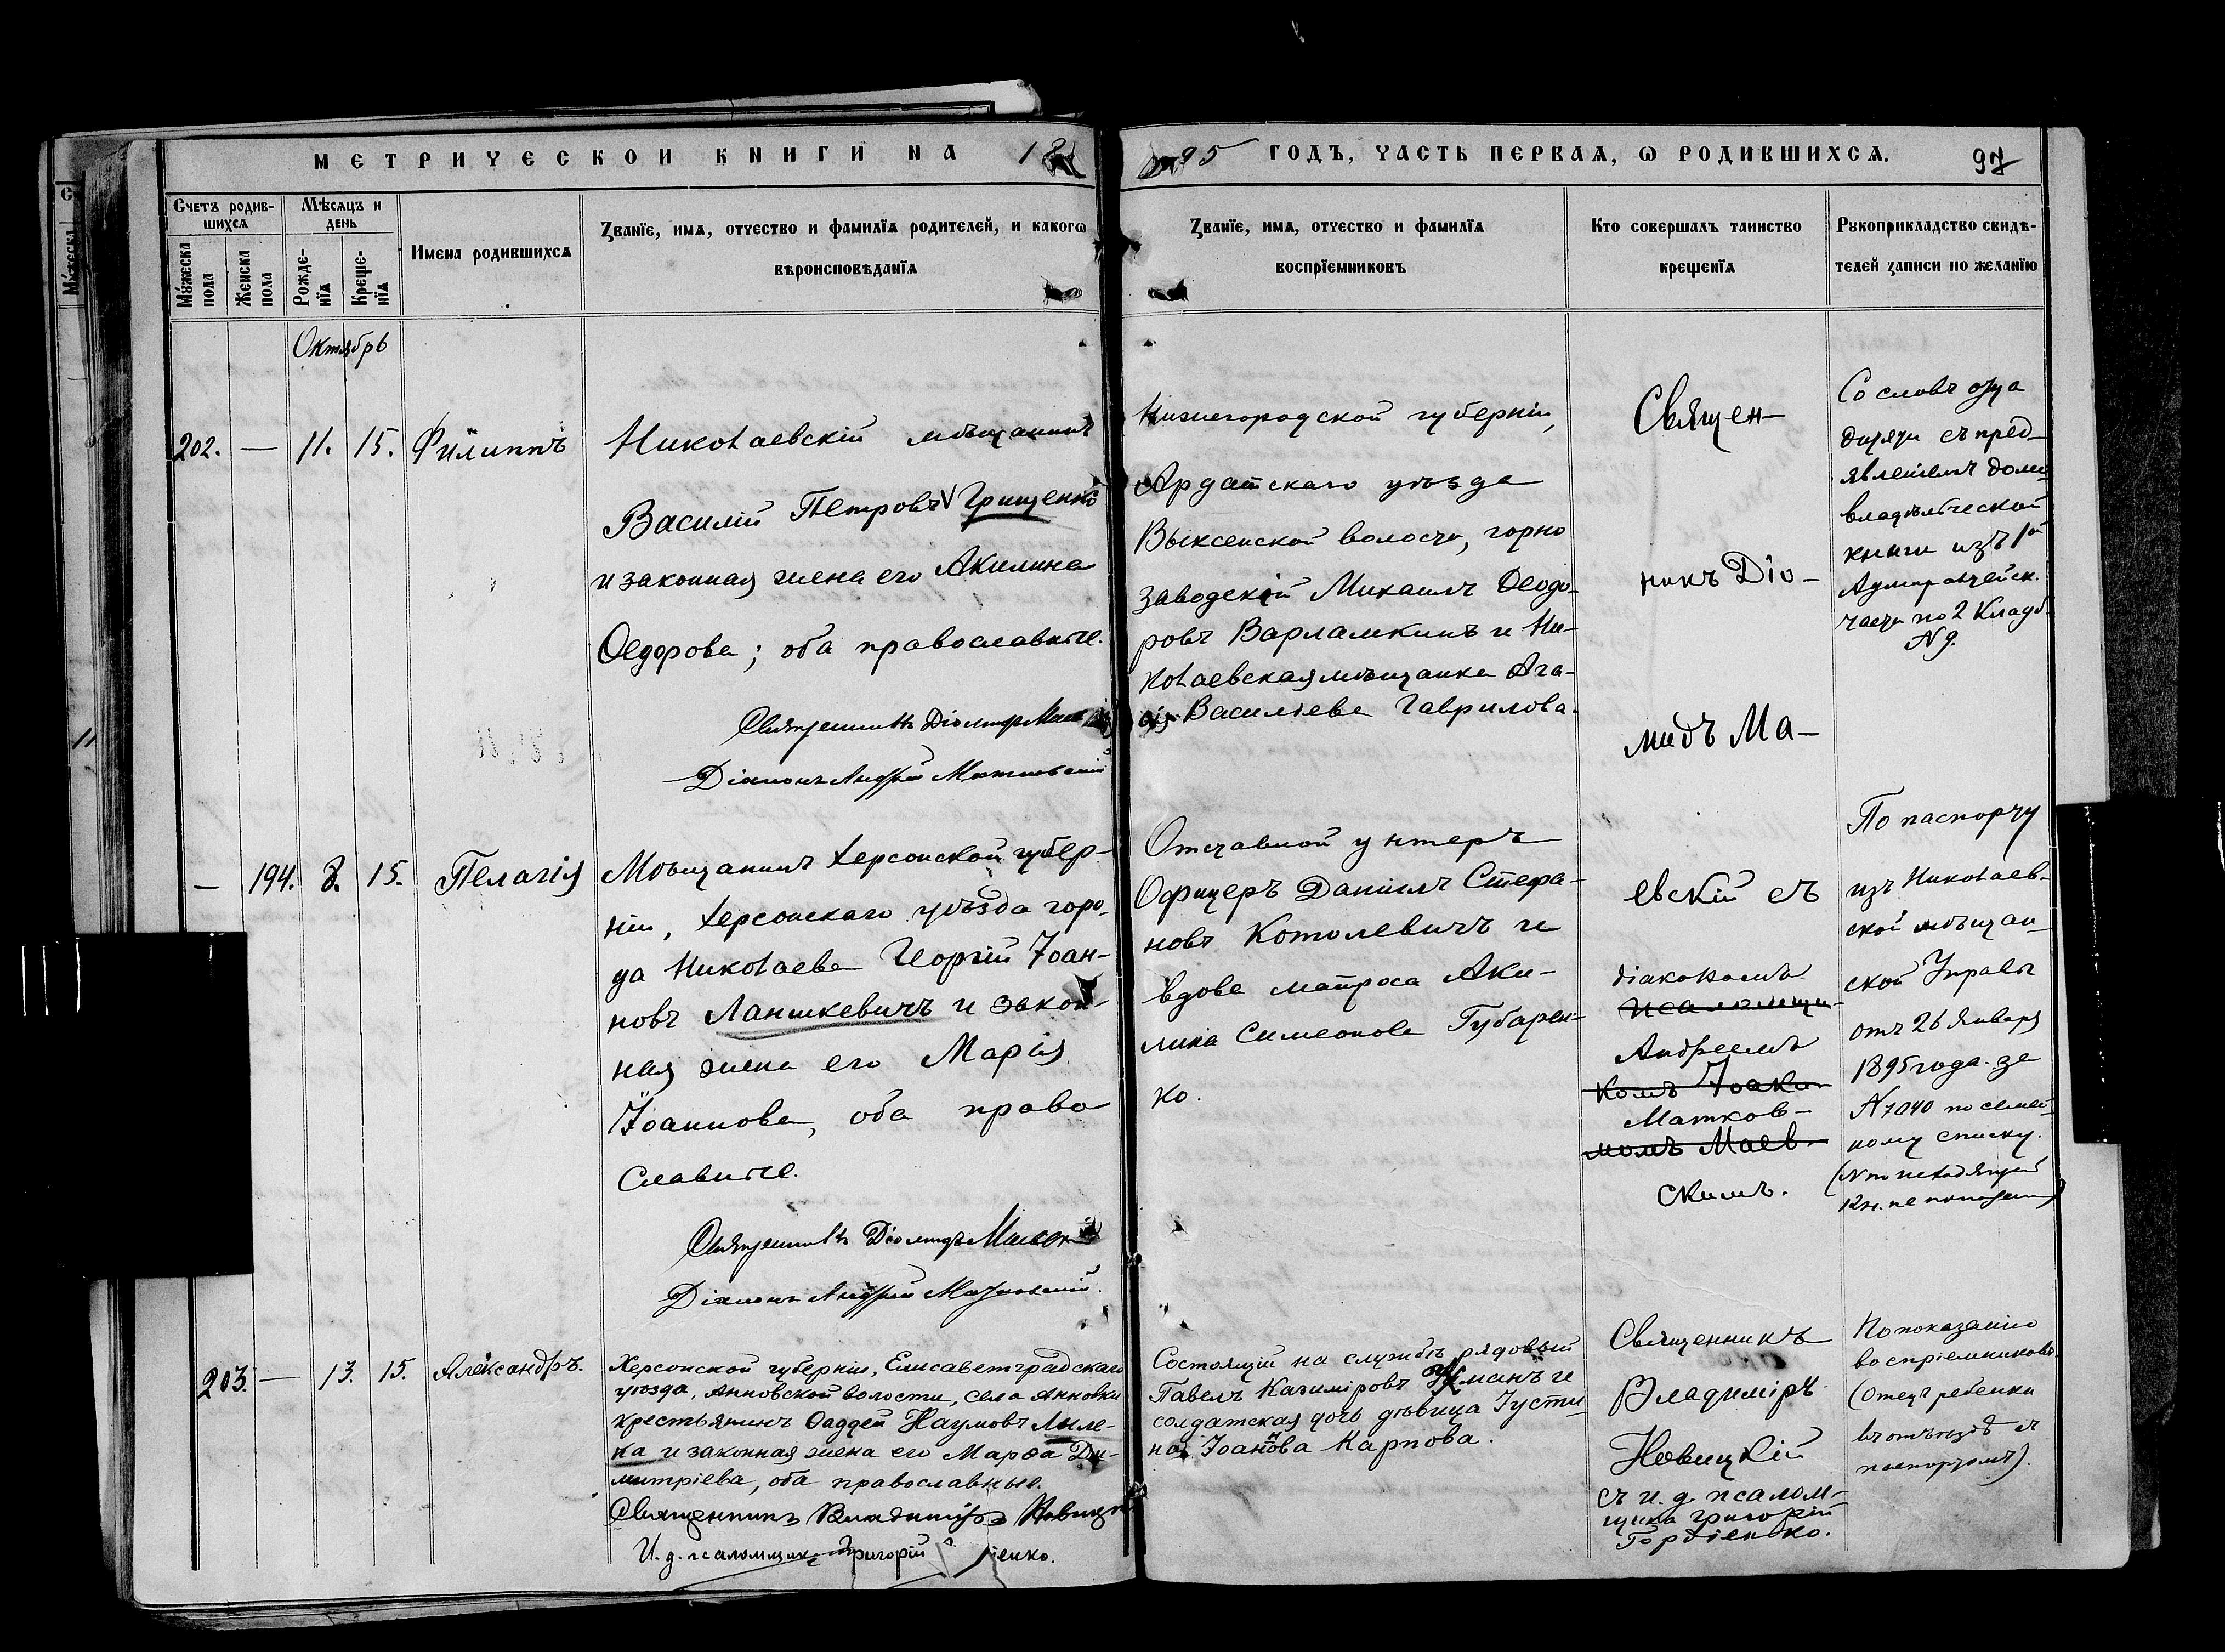 МЕТРИЧЕСКОЙ КНИГИ НА 18
95 ГОДЪ, ЧАСТЬ ПЕРВАЯ, Ѡ РОДИВШИХСЯ.
97
Счетъ родив-
шихся
Мужеска пола
Женска пола
Мѣсяцъ и
день
Рожде-
нїя
Креще-
нїя
Имена родившихся
Званїе, имя, отчество и фамилїя родителей, и какогѡ
вѣроисповѣданїя
Званїе, имя, отчество и фамилїя
воспрїемниковъ
Кто совершалъ таинство
крещенїя
Рукоприкладство свидѣ-
телей записи по желанїю
Октябрь
202. — 11. 15. Филиппъ
Николаевскій мѣщанинъ
Василій Петровъ Грищенко
и законная жена его Акилина
Ѳедорова; оба православные.
Священникъ Діомидъ Маевскій
Діаконъ Андрей Матковскій
Нижегородской губерніи,
Ардатскаго уѣзда
Выксенской волости, горно
заводскій Михаилъ Ѳеодо-
ровъ Варламкинъ и Ни-
колаевская мѣщанка Ага-
ѳія Васильева Гаврилова.
Священ-
никъ Діо-
мидъ Ма-
евскій съ
діакономъ
псаломщи-
Андреемъ
комъ Іоаки-
Матков-
момъ Маев-
скимъ.
Со словъ отца
дитяти съ пред-
явленіемъ домо
владѣльческой
книги изъ 1й
Адмиралтейск.
части по 2 Кладб.
N 9.
— 194. 8. 15. Пелагія
Мѣщанинъ Херсонской губер-
ніи, Херсонскаго уѣзда горо-
да Николаева Георгій Іоан-
новъ Лапшкевичъ и закон-
ная жена его Марія
Іоаннова, оба право
славные.
Священникъ Діомидъ Маевскій
Діаконъ Андрей Матковскій.
Отставной унтеръ
Офицеръ Даніилъ Стефа-
новъ Котолевичъ и
вдова матроса Аки-
лина Симеонова Губарен-
ко.
По паспорту
изъ Николаев-
ской мѣщан-
ской Управы
отъ 26 Января
1895 года за
N 7040 по семей-
ному списку.
(N по исходящей
кн. не показанъ)
203. — 13. 15. Александръ.
Херсонской губерніи, Елисаветградскаго
уѣзда, Анновской волости, села Анновки
крестьянинъ Ѳаддей Наумовъ Лыле-
ка и законная жена его Марѳа Ди-
митріева, оба православные.
Священникъ Владиміръ Новицкій
И. д. псаломщика Григорій
Состоящій на службѣ рядовый
Павелъ Казиміровъ и
солдатская дочь дѣвица Іусти-
на Іоаннова Карпова.
Священникъ
Владиміръ
Новицкій
съ и. д. псалом-
щика Григорій
Гордіенко.
По показанію
воспріемниковъ.
(Отецъ ребенка
въ отъѣздѣ съ
паспортомъ).